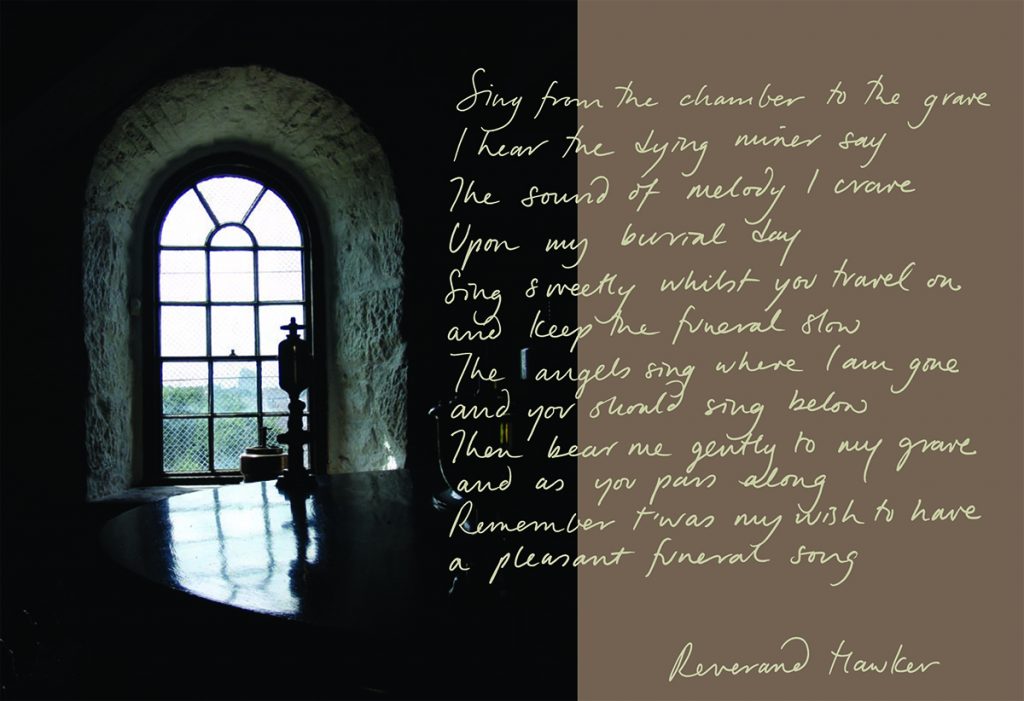 Sing from the chamber to the grave
I hear the dying miner say
The sound of melody I crave
Upon my burial day
Sing sweetly whilst you travel on
and keep the funeral slow
The angels sing where I am gone
and you should sing below
Then bear me gently to my grave
and as you pass along
Remember t'was my wish to have
a pleasant funeral song
Reverand Hawker